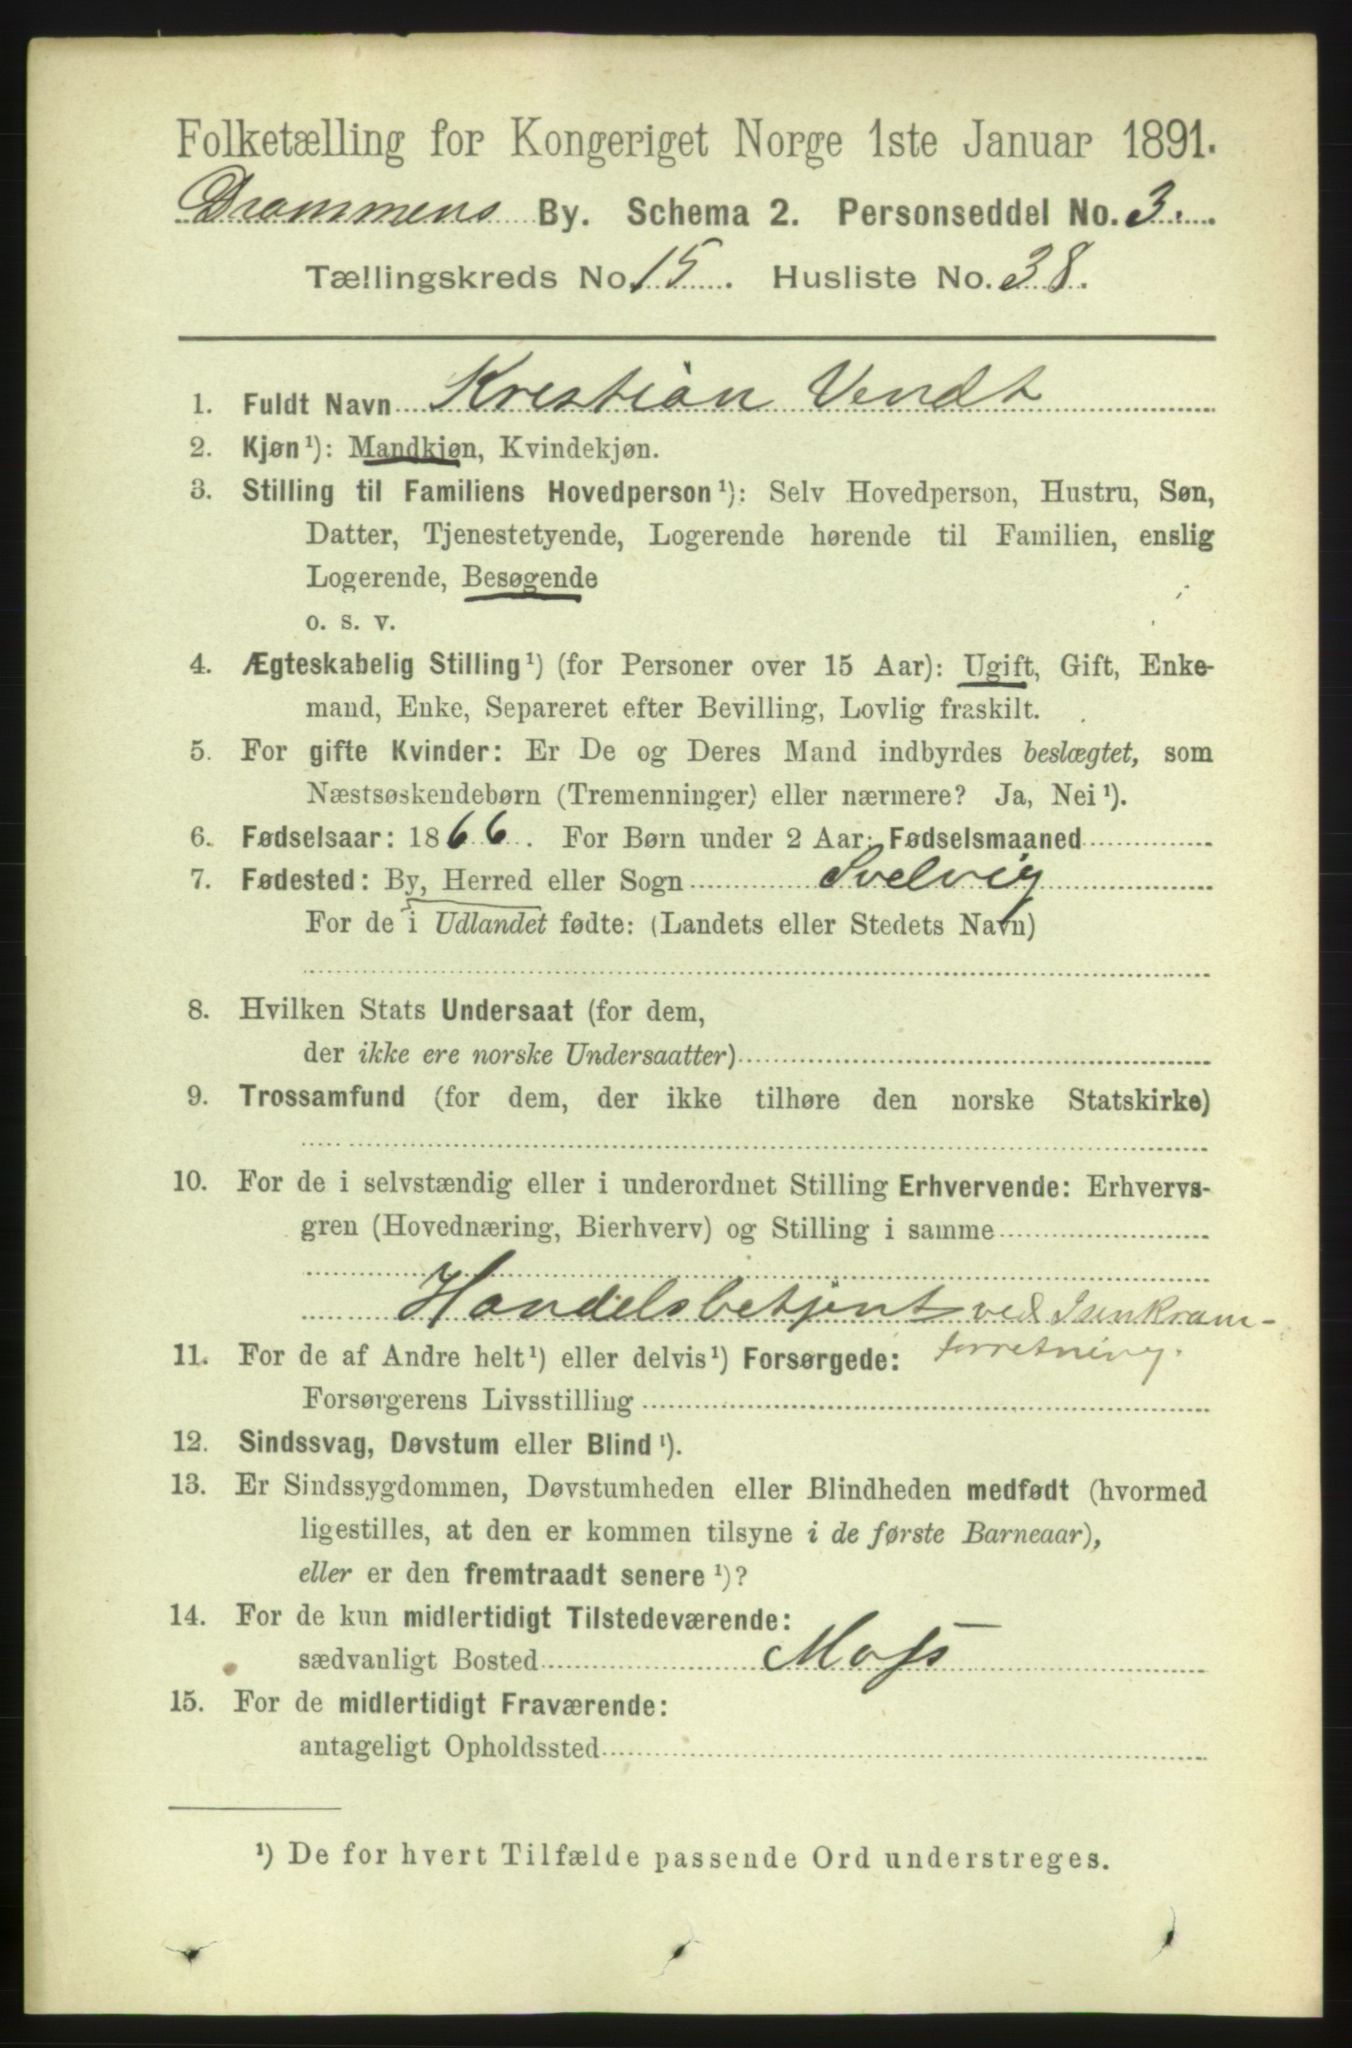 Folketælling for Kongeriget Norge 1ste Januar 1891.
Drammens By. Schema 2. Personseddel No. 3.
Tællingskreds No. 15. Husliste No. 38.
1. Fuldt Navn Kristian Vendt
2. Kjøn¹): Mandkjøn, Kvindekjøn.
3. Stilling til Familiens Hovedperson¹): Selv Hovedperson, Hustru, Søn,
Datter, Tjenestetyende, Logerende hørende til Familien, enslig
Logerende, Besøgende
o. s. v.
4. Ægteskabelig Stilling¹) (for Personer over 15 Aar): Ugift, Gift, Enke-
mand, Enke, Separeret efter Bevilling, Lovlig fraskilt.
5. For gifte Kvinder: Er De og Deres Mand indbyrdes beslægtet, som
Næstsøskendebørn (Tremenninger) eller nærmere? Ja, Nei¹).
6. Fødselsaar: 1866. For Børn under 2 Aar: Fødselsmaaned
7. Fødested: By, Herred eller Sogn Svelvig
For de i Udlandet fødte: (Landets eller Stedets Navn)
8. Hvilken Stats Undersaat (for dem,
der ikke ere norske Undersaatter)
9. Trossamfund (for dem, der ikke tilhøre den norske Statskirke)
10. For de i selvstændig eller i underordnet Stilling Erhvervende: Erhvervs-
gren (Hovednæring, Bierhverv) og Stilling i samme
Handelsbetjent ved Isenkram-
forretning.
11. For de af Andre helt¹) eller delvis¹) Forsørgede:
Forsørgerens Livsstilling
12. Sindssvag, Døvstum eller Blind¹).
13. Er Sindssygdommen, Døvstumheden eller Blindheden medfødt (hvormed
ligestilles, at den er kommen tilsyne i de første Barneaar),
eller er den fremtraadt senere¹)?
14. For de kun midlertidigt Tilstedeværende:
sædvanligt Bosted Moss
15. For de midlertidigt Fraværende:
antageligt Opholdssted
¹) De for hvert Tilfælde passende Ord understreges.